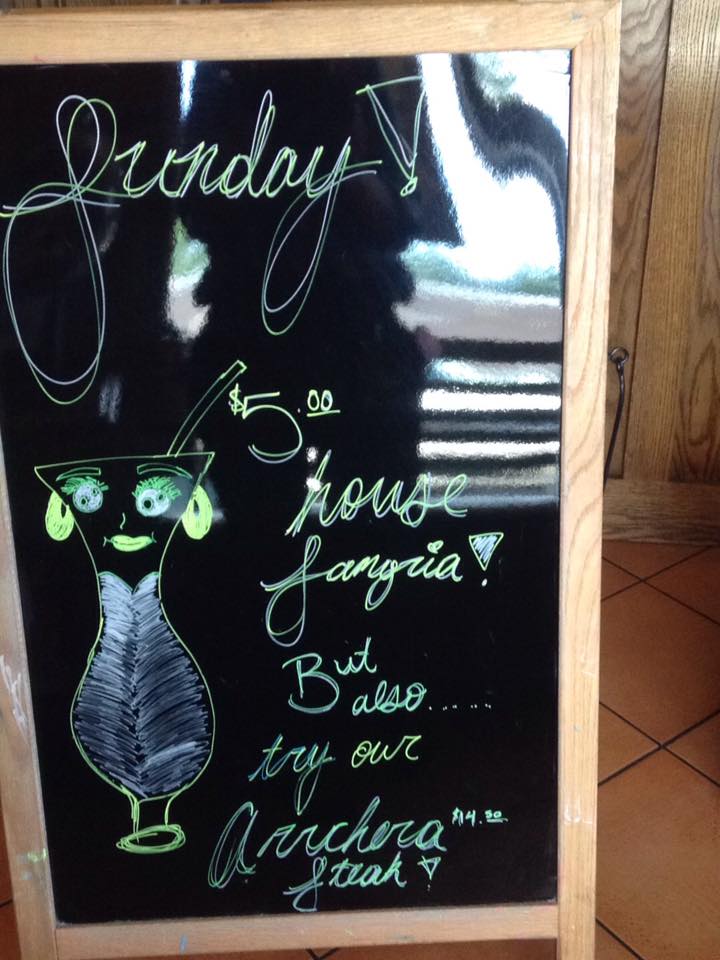 Sunday!
$5.00
house
Sangria!
But
also......
try our
Arrchera $14.50
Steak!